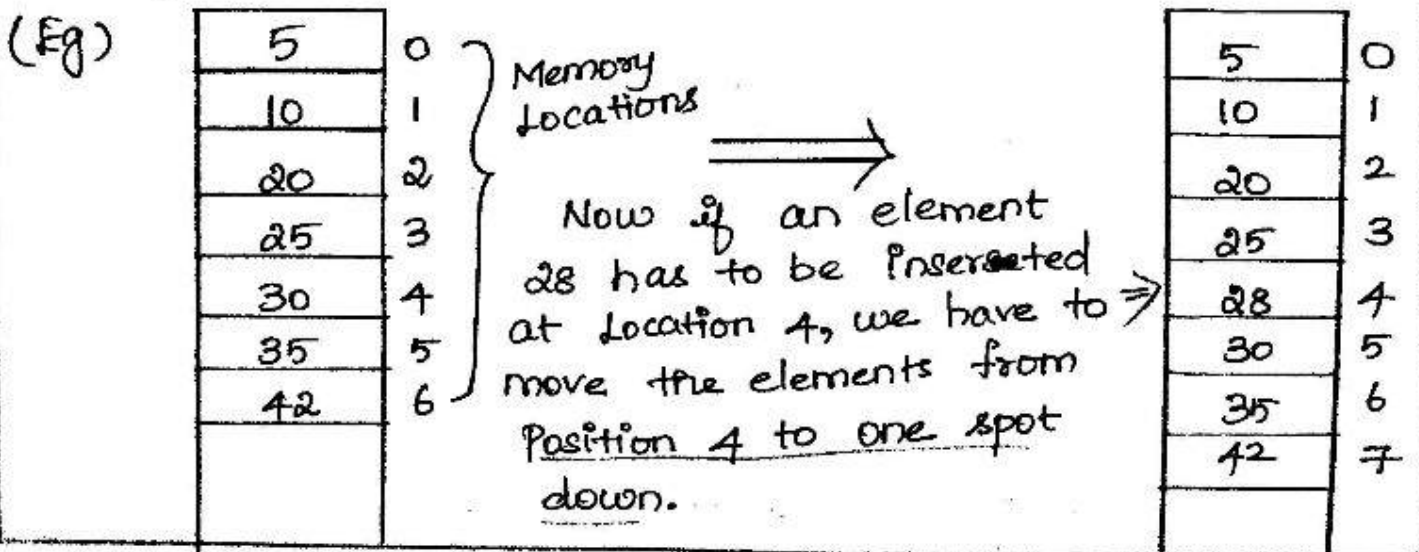 (Eg)
5 0
10 1
20 2
25 3
30 4
35 5
42 6
Memory
Locations
Now if an element
28 has to be inserseted
at Location 4, we have to
move the elements from
Position 4 to one spot
down.
5 0
10 1
20 2
25 3
28 4
30 5
35 6
42 7